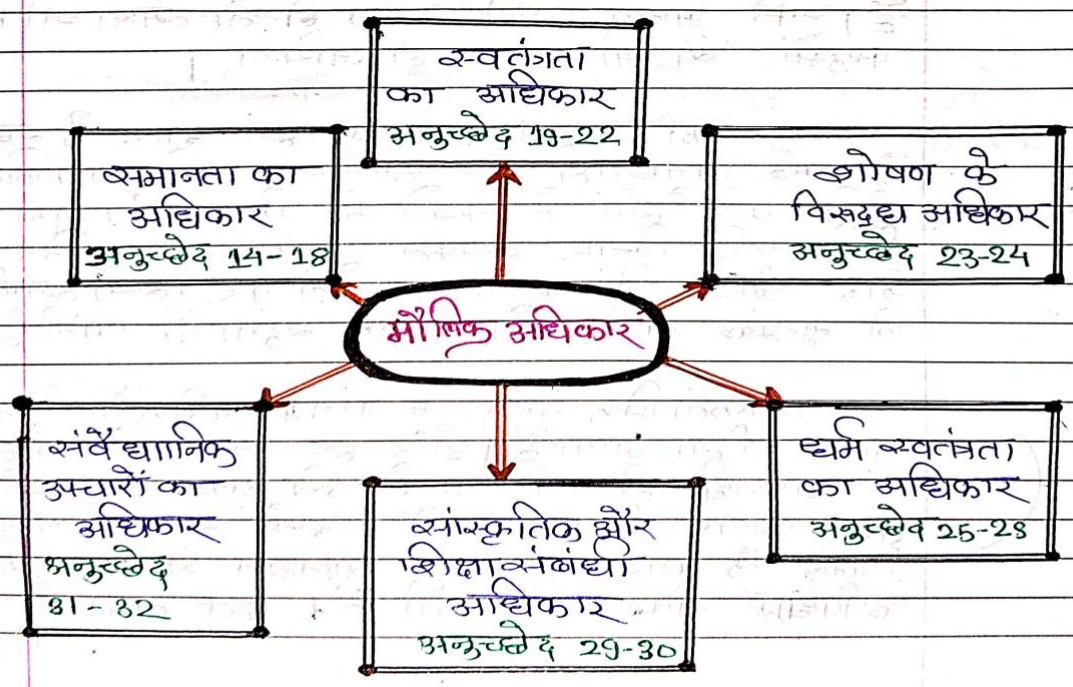 स्वतंत्रता
का अधिकार
अनुच्छेद 19-22
समानता का
अधिकार
अनुच्छेद 14-18
शोषण के
विरुद्ध अधिकार
अनुच्छेद 23-24
मौलिक अधिकार
संवैधानिक
उपचारों का
अधिकार
अनुच्छेद
31-32
सांस्कृतिक और
शिक्षा संबंधी
अधिकार
अनुच्छेद 29-30
धर्म स्वतंत्रता
का अधिकार
अनुच्छेद 25-28